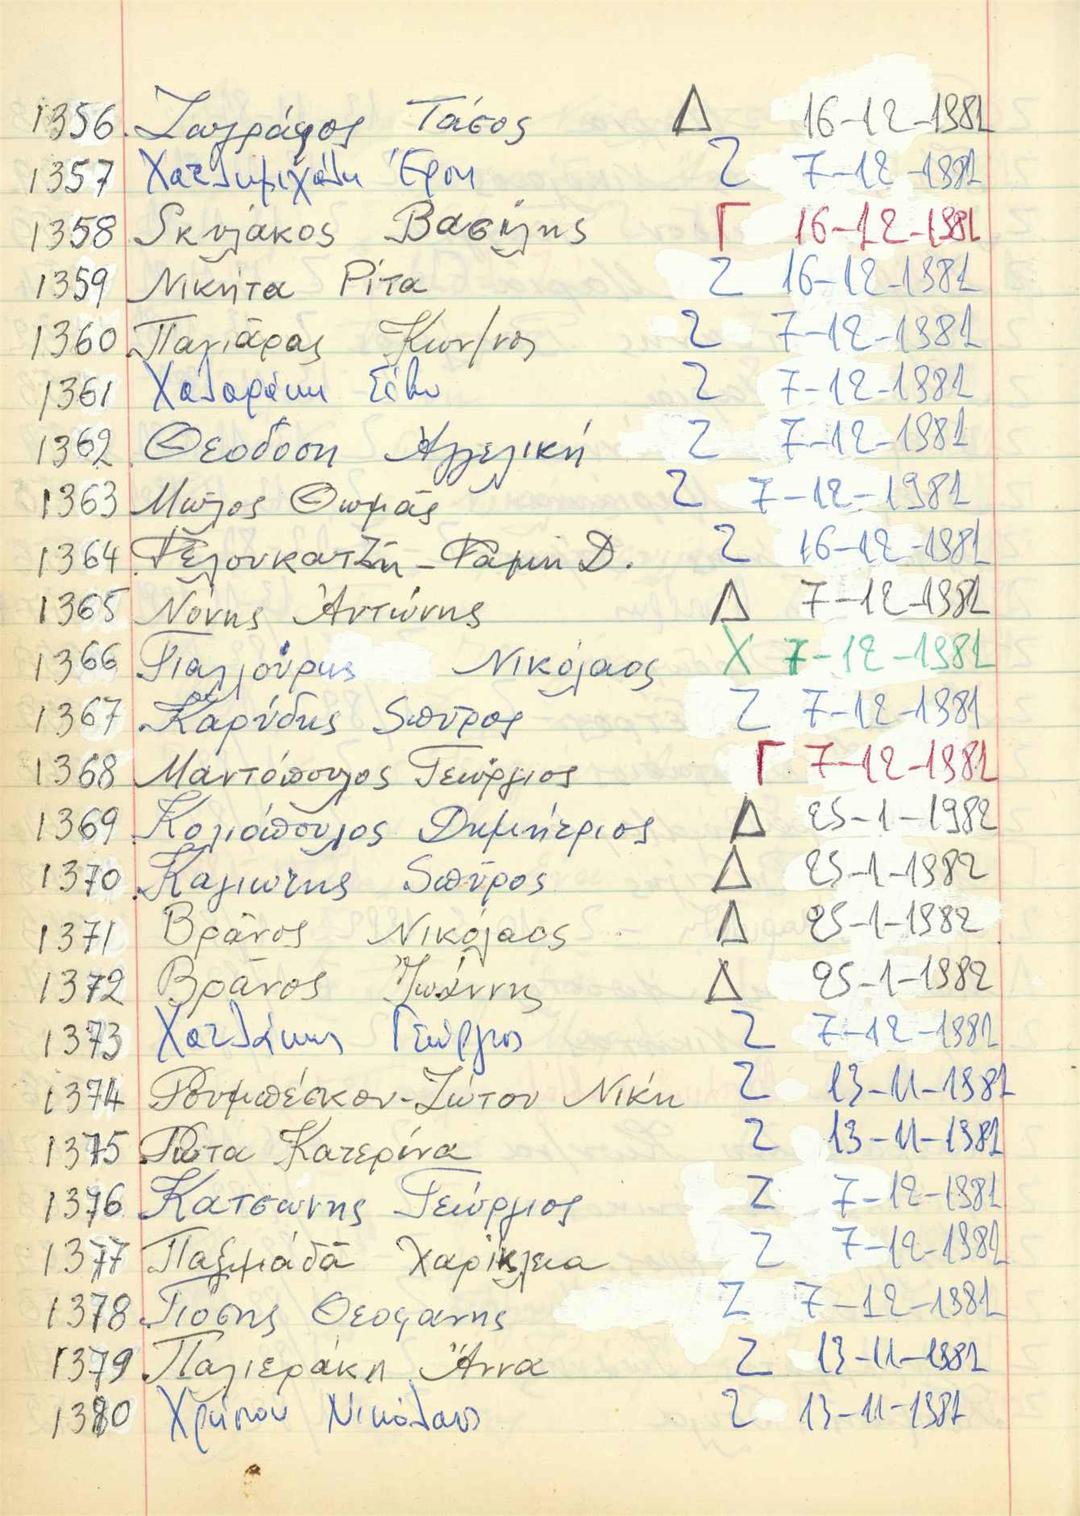 1356 Ζωγράφος Τάσος Δ 16-12-1981
1357 Χατζημιχάλη Έρση Ζ 7-12-1981
1358 Σκυλάκος Βασίλης Γ 16-12-1981
1359 Νικήτα Ρίτα Ζ 16-12-1981
1360 Παλιάρας Κων/νος Ζ 7-12-1981
1361 Ζ 7-12-1981
1362 Θεοδόση Αγγελική Ζ 7-12-1981
1363 Μώλος Θωμάς Ζ 7-12-1981
1364 Γελουκατζή-Φάμπη Δ. Ζ 16-12-1981
1365 Νόνης Αντώνης Δ 7-12-1981
1366 Γιαλλούρης Νικόλαος Χ 7-12-1981
1367 Καρύδης Σπύρος Ζ 7-12-1981
1368 Μαντόπουλος Γεώργιος Γ 7-12-1981
1369 Κολιόπουλος Δημήτριος Δ 25-1-1982
1370 Καλιώτης Σπύρος Δ 25-1-1982
1371 Βράνος Νικόλαος Δ 25-1-1982
1372 Βράνος Ἰωάννης Δ 25-1-1982
1373 Χατζάκης Γεώργιος Ζ 7-12-1981
1374 Ρουμπέσκου-Ζώτου Νίκη Ζ 13-11-1981
1375 Ρώτα Κατερίνα Ζ 13-11-1981
1376 Κατσώνης Γεώργιος Ζ 7-12-1981
1377 Παξιμάδα Χαρίκλεια Ζ 7-12-1981
1378 Γιόσης Θεοφάνης Ζ 7-12-1981
1379 Παλιεράκη Ἄννα Ζ 13-11-1981
1380 Χρήστου Νικόλαος Ζ 13-11-1981